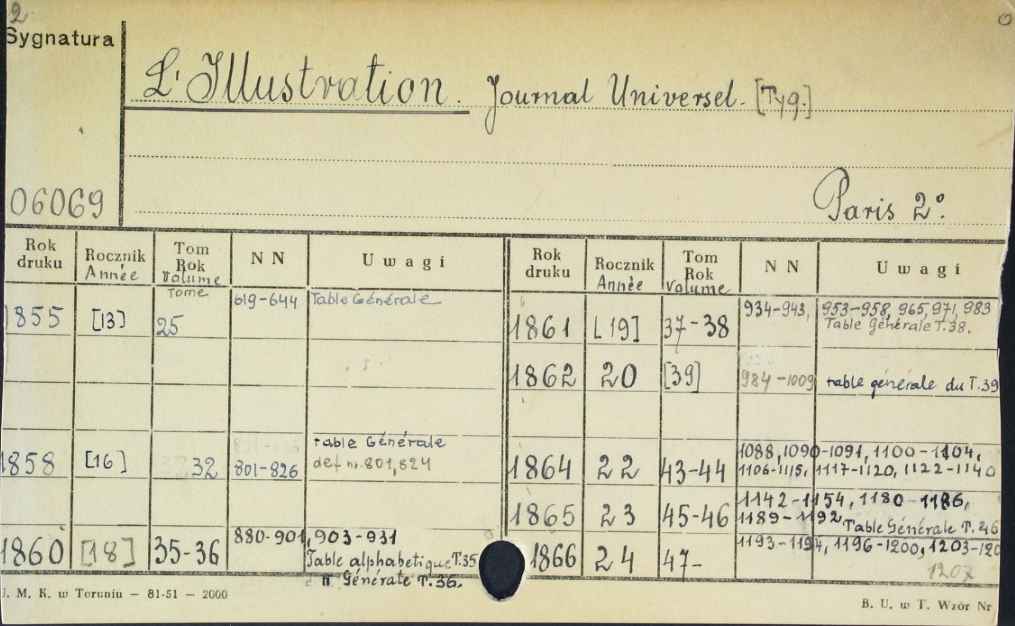 2
Sygnatura
L'Illustration. Journal Universel. [Tyg.]
06069
Paris 2°.
Rok druku Rocznik Année Tom Rok Volume Tome NN Uwagi
1855 [13] 25 619-644 Table Générale
1858 [16] 32 801-826 Table Générale def. n. 801, 824
1860 [18] 35-36 880-901, 903-931
Table alphabetique T.35
" Générale T.36.
Rok druku Rocznik Année Tom Rok Volume NN Uwagi
1861 [19] 37-38 934-943, 953-958, 965, 971, 983
Table Générale T.38.
1862 20 [39] 984-1009 table générale du T.39
1864 22 43-44 1088, 1090-1091, 1100-1104,
1106-1115, 1117-1120, 1122-1140
1865 23 45-46 1142-1154, 1180-1186,
1189-1192 Table Générale T.46
1866 24 47- 1193-1194, 1196-1200, 1203-
1207
J. M. K. w Toruniu – 81-51 – 2000
B. U. w T. Wzór Nr